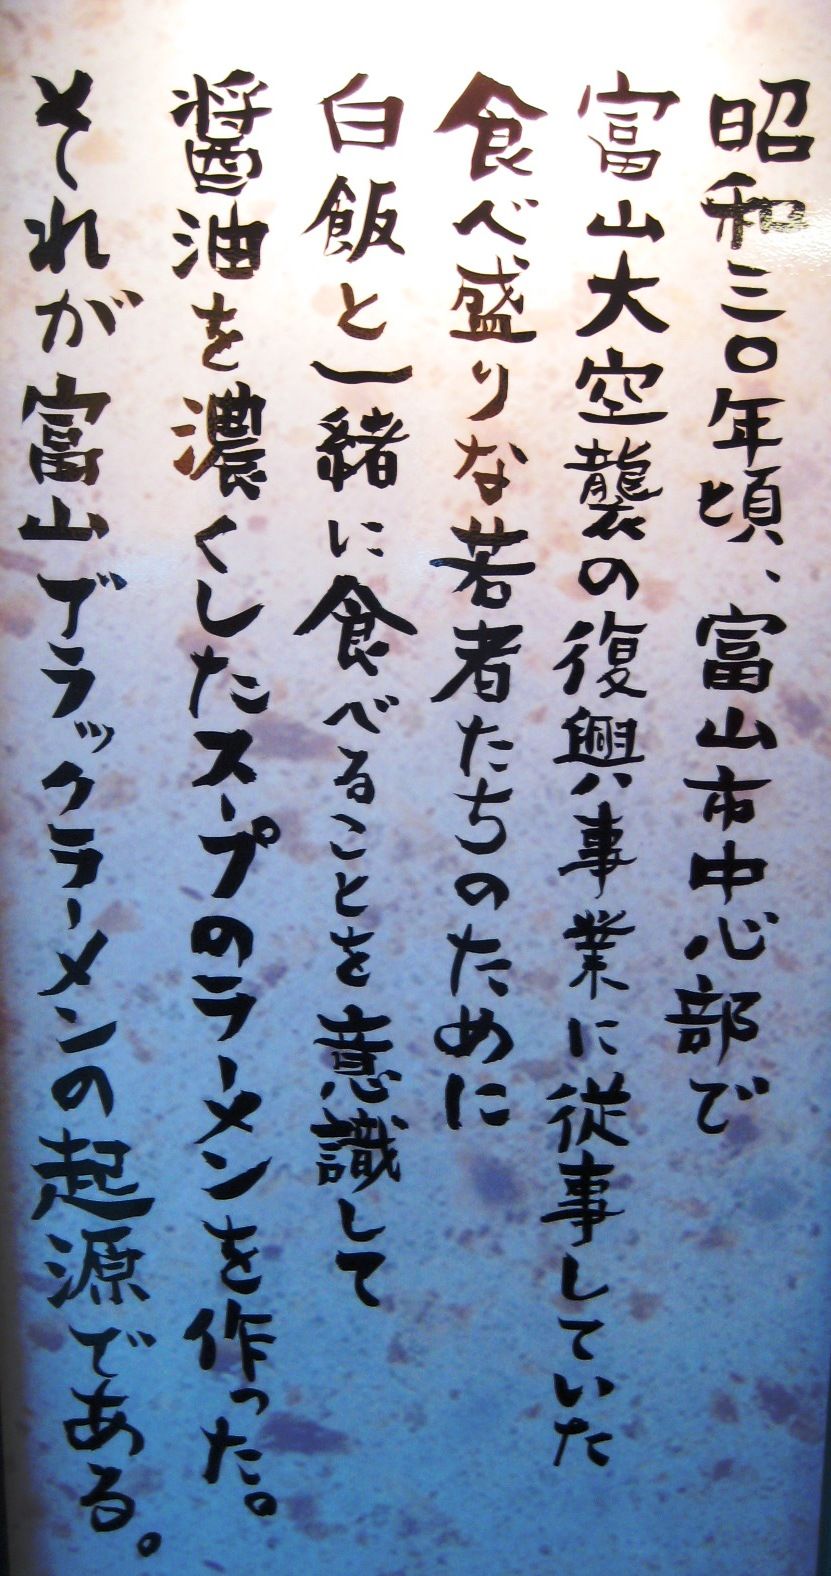 昭和三〇年頃、富山市中心部で
富山大空襲の復興事業に従事していた
食べ盛りな若者たちのために
白飯と一緒に食べることを意識して
醤油を濃くしたスープのラーメンを作った。
それが富山ブラックラーメンの起源である。